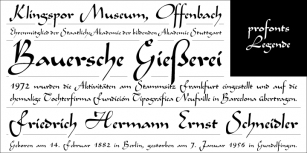 Klingspor Museum, Offenbach
Ehrenmitglied der Staatlichen Akademie der bildenden Akademie Stuttgart
Bauersche Gießerei
1972 wurden die Aktivitäten am Stammsitz Frankfurt eingestellt und auf die
ehemalige Tochterfirma Fundición Tipográfica Neufville in Barcelona übertragen.
Friedrich Hermann Ernst Schneidler
Geboren am 14. Februar 1882 in Berlin, gestorben am 7. Januar 1956 in Gundelfingen.
profonts
Legende